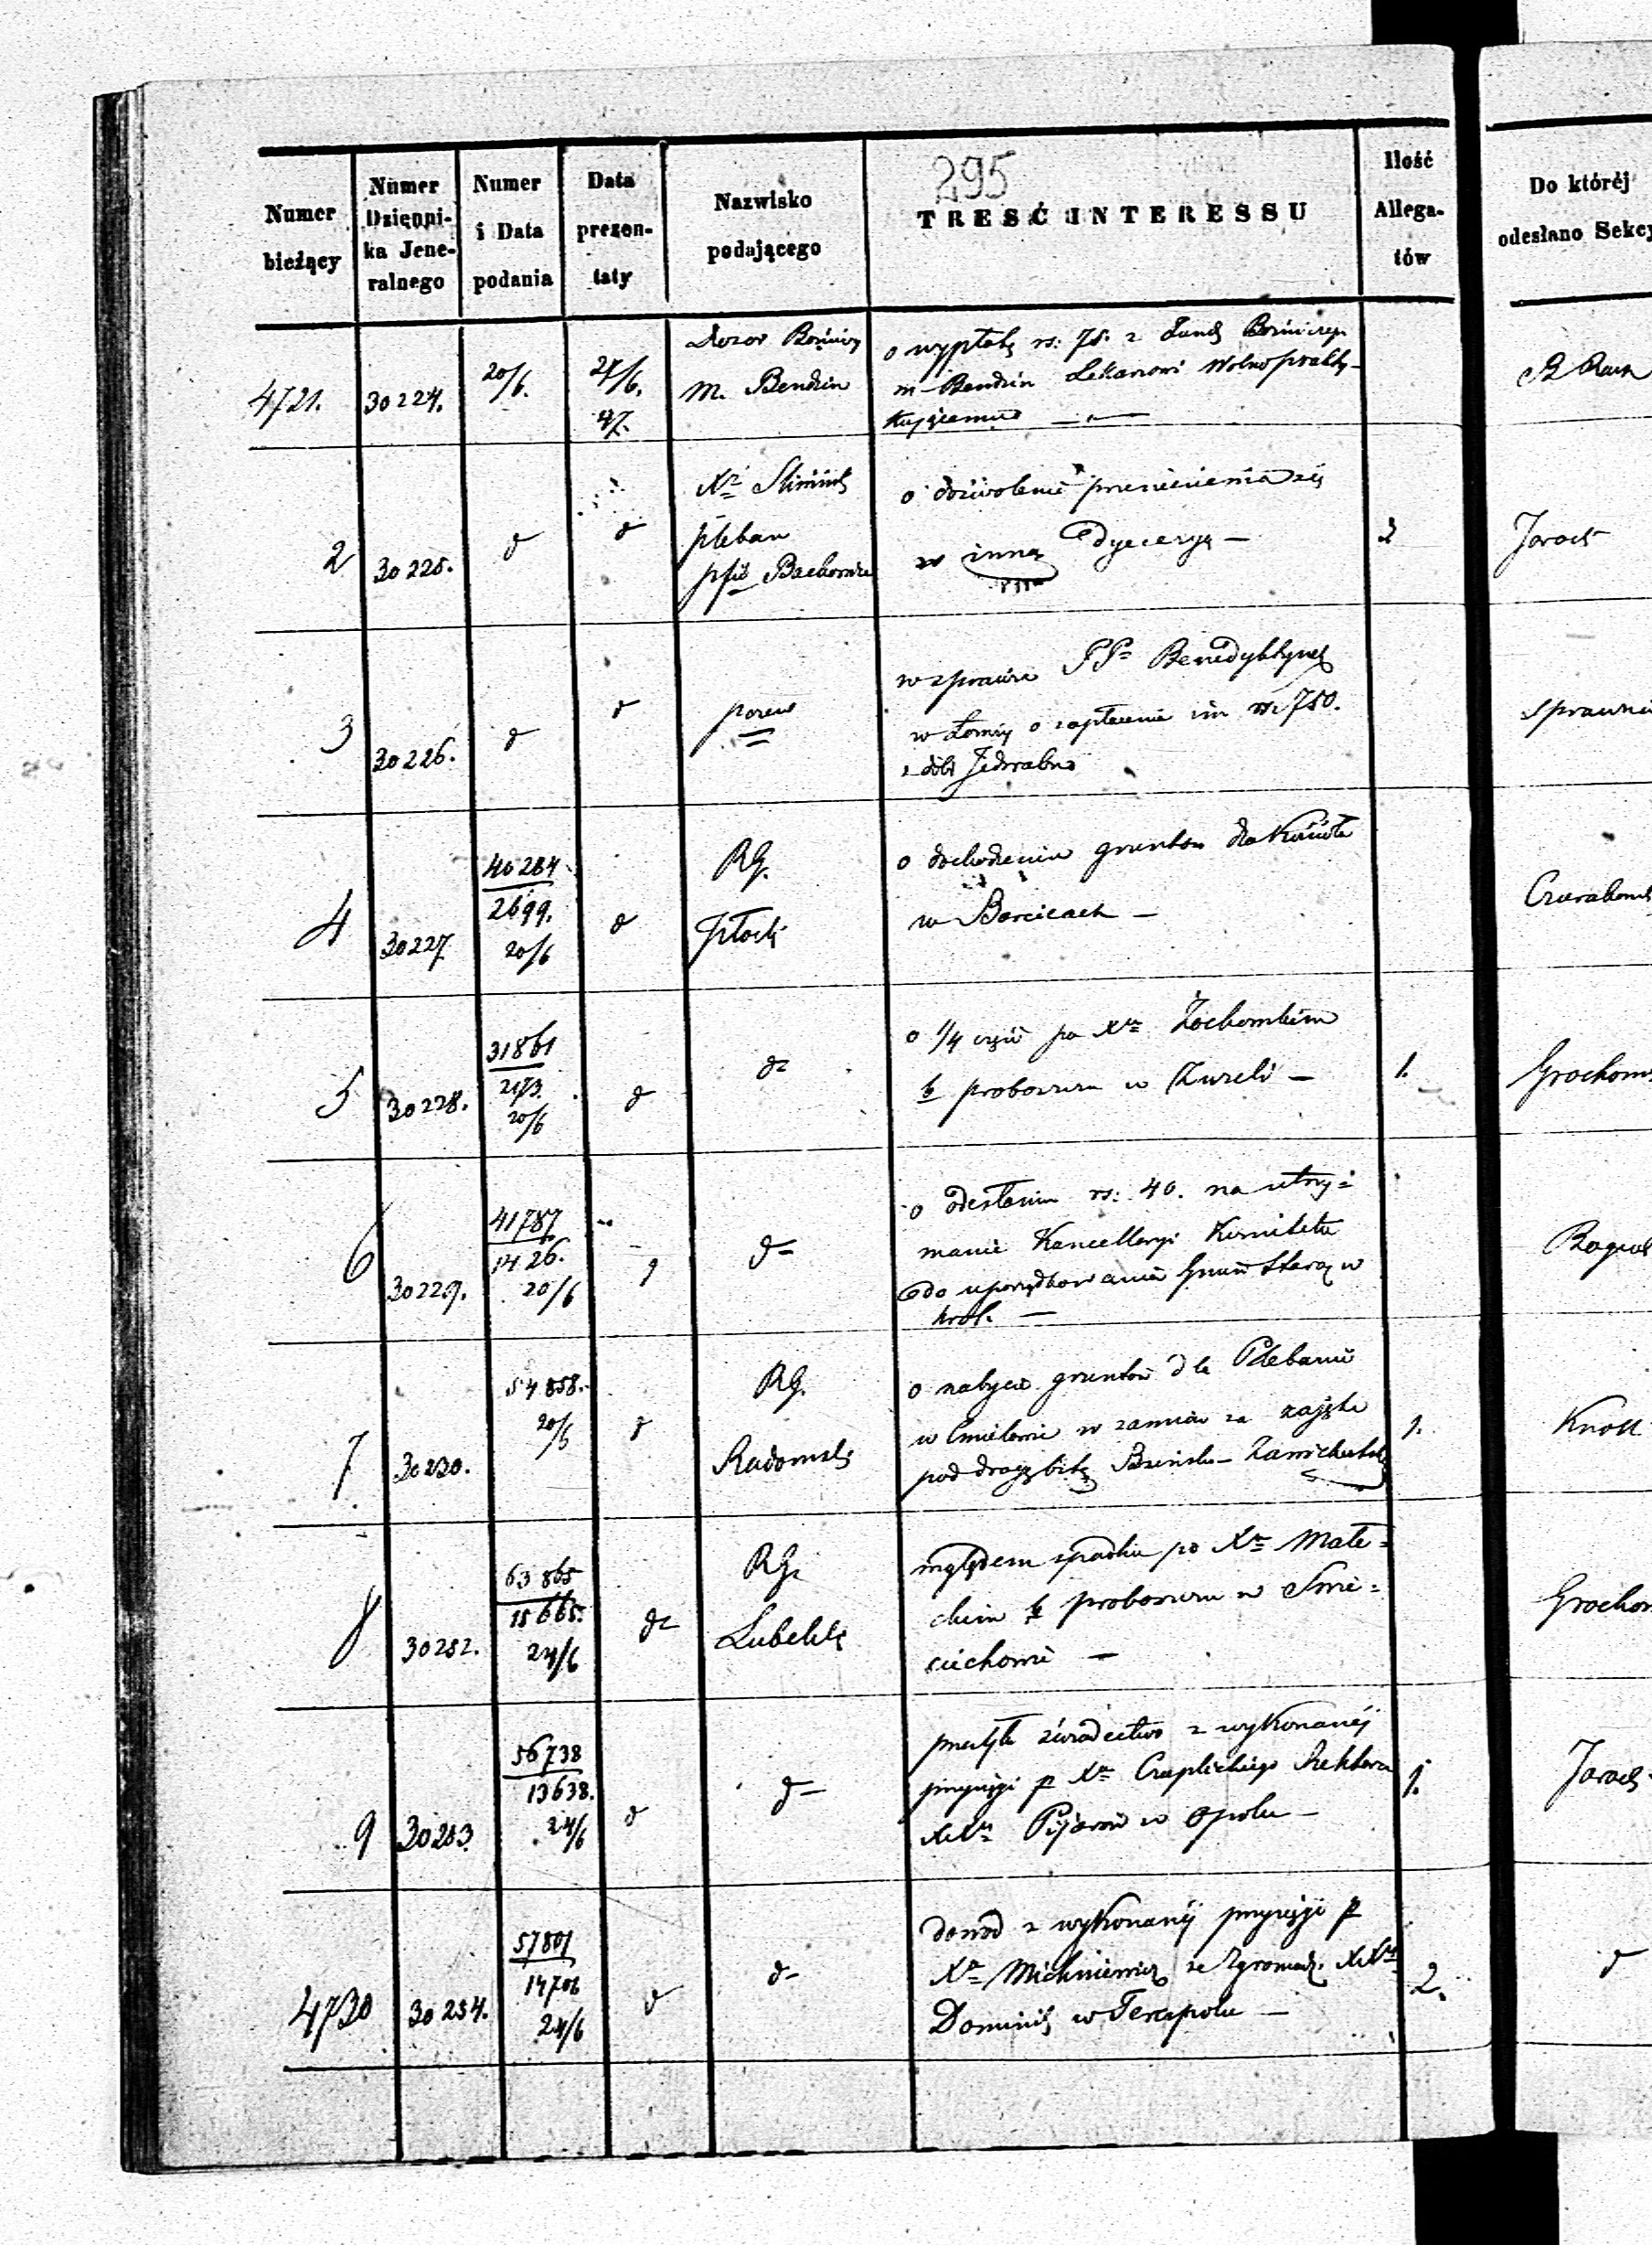 295
Numer bieżący
Numer Dzienni-
ka Jene-
ralnego
Numer i Data podania
Data prezen-
taty
Nazwisko podającego
TRESĆ INTERESSU
Ilość Allega-
tów
Do któréj odesłano Sekcy
4721. 30224. 20/6. 24/6. 47.
Dozor Bożniczy
m. Bendzin
o wypłatę rs: 75. z Fund Bożniczego
m Bendzin Lekarzowi Wolno prakty-
kującemu —
2 30225. d d
Xdz
pleban
o dozwolenie przeniesienia się
w inną Dyecezyą —
2
Jarock
3 30226. d d
w sprawie PP Benedyktynek
w Łomży o zapłacenie im rs 750.
z dóbr Jedwabno
sprawni
4 30227.
40284
2699.
20/6
d
RG.
Płocki
o dochodzeniu gruntów dla Kościoła
w Barcicach —
5 30228.
31861
2173.
20/6
d
d
o 1/4 części po Xdzu Żochowskim
b proboszczu w —
1.
Grochows
6 30229.
41787
1426.
20/6
d
o odesłaniu rs: 40. na utrzy=
manie Kancellaryi Komitetu
do uporządkowania Gmin Staroz w
Król. —
7 30230.
54858.
20/5
d
RG.
Radomski
o nabycie gruntów dla Plebanii
w Ćmielowie w zamian za zajęte
pod drogę bitą Bzinsko-Zawichostską
1.
Knoll
8 30252.
63865
15665.
24/6
d
RG.
Lubelski
względem spadku po Xdzu Małe=
ckim b proboszczu w
ciechowie —
Grochow
9 30253.
56738
13638.
24/6
d
d
przesyła świadectwo z wykonanéj
przysięgi p Xdza Czaplickiego Rektora
XXży Pijarów w Opolu —
1.
Jarock
4730 30254.
57801
14706
24/6
d
d
dowod z wykonanéj przysięgi p
Xdza Michniewicz ze Zgromadz. XXży
Dominik w Terespolu —
2.
d